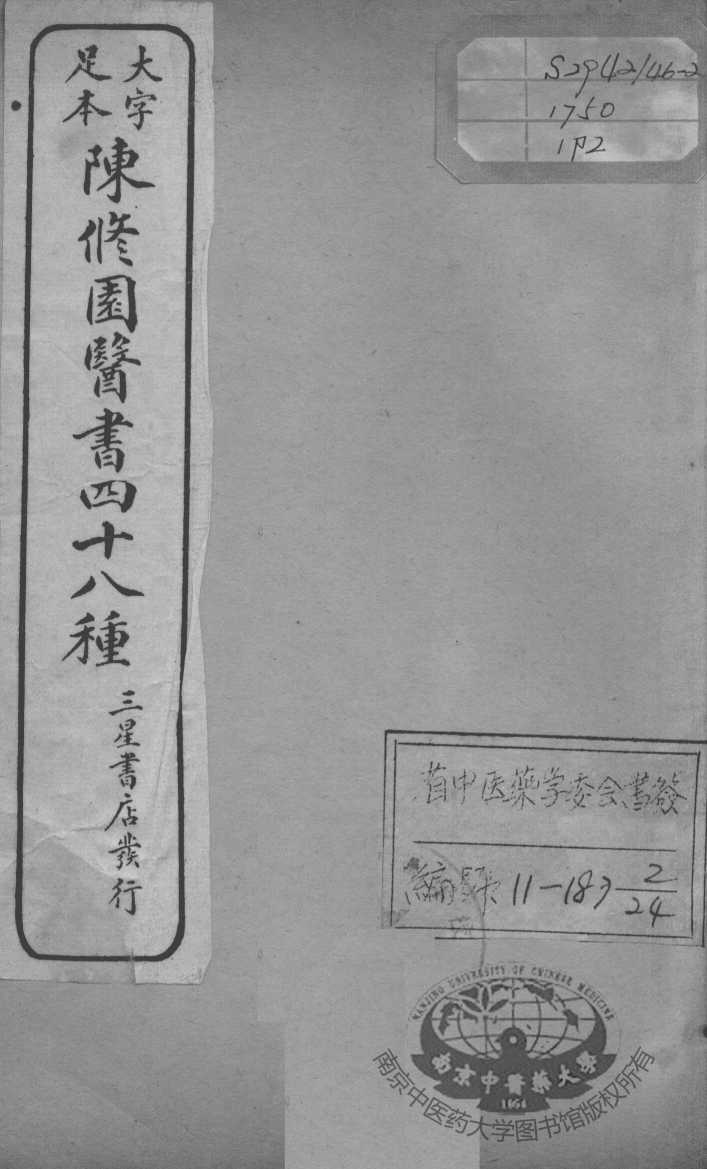 大字
足本
陳修園醫書四十八種
三星書店發行
S2942/46-2
1750
1P2
省中医藥学委会
編號 11-187 2/24
NANJING UNIVERSITY OF CHINESE MEDICINE
南京中醫藥大學
1954
南京中医药大学图书馆版权所有